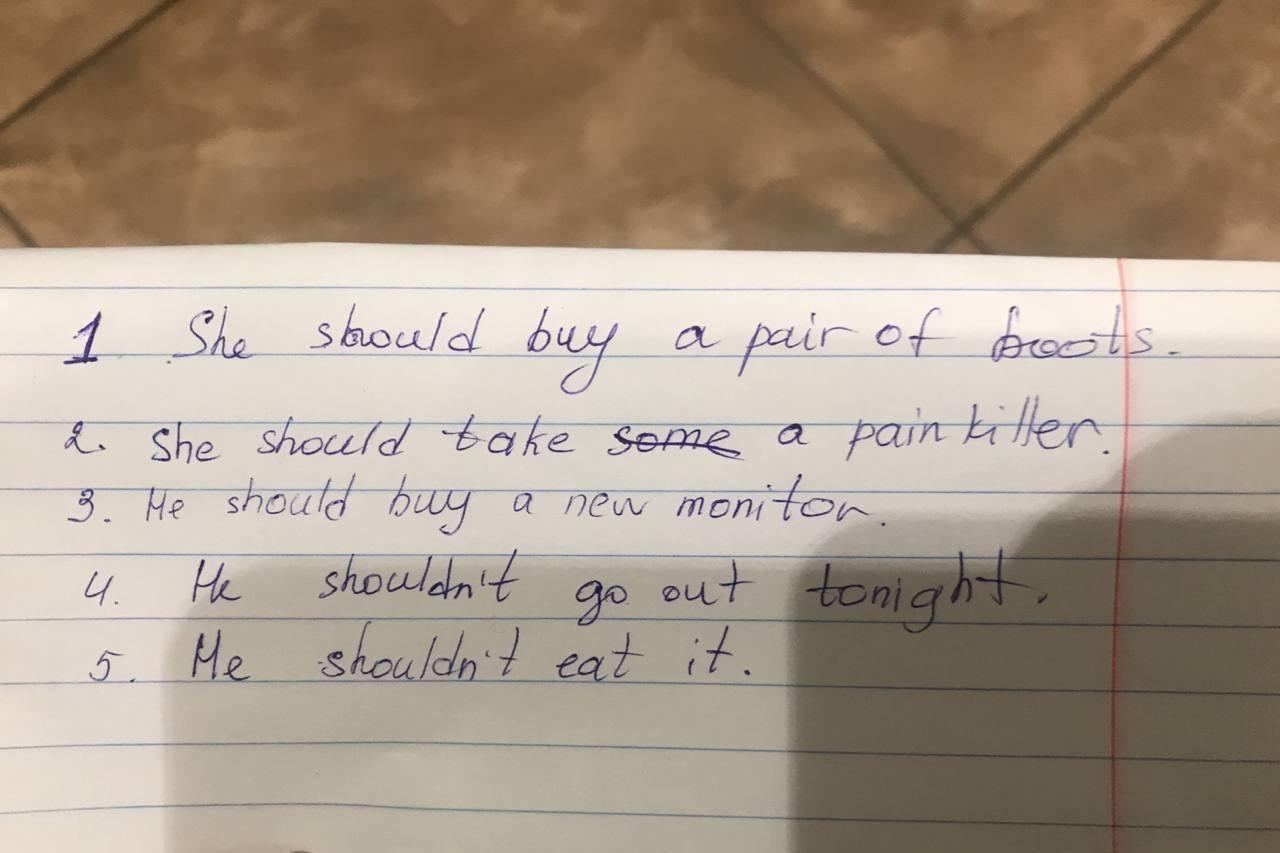 1 She should buy a pair of boots.
2. She should take ~~some~~ a painkiller.
3. He should buy a new monitor.
4. He shouldn't go out tonight.
5. He shouldn't eat it.